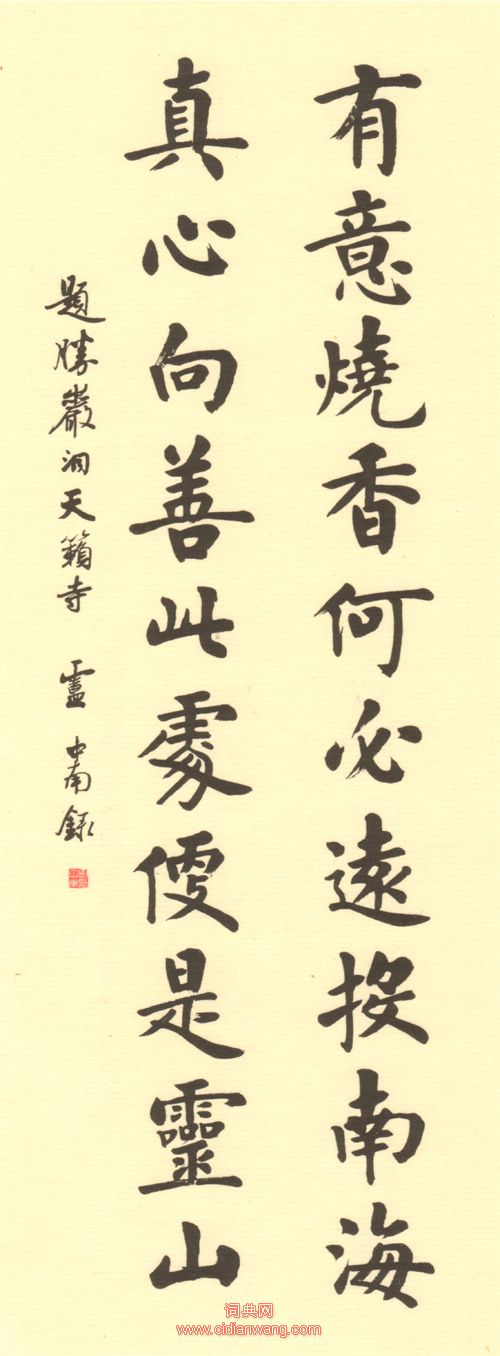 有意燒香何必遠投南海
真心向善此處便是靈山
題勝嚴洞天籟寺 盧中南錄
词典网
www.cidianwang.com